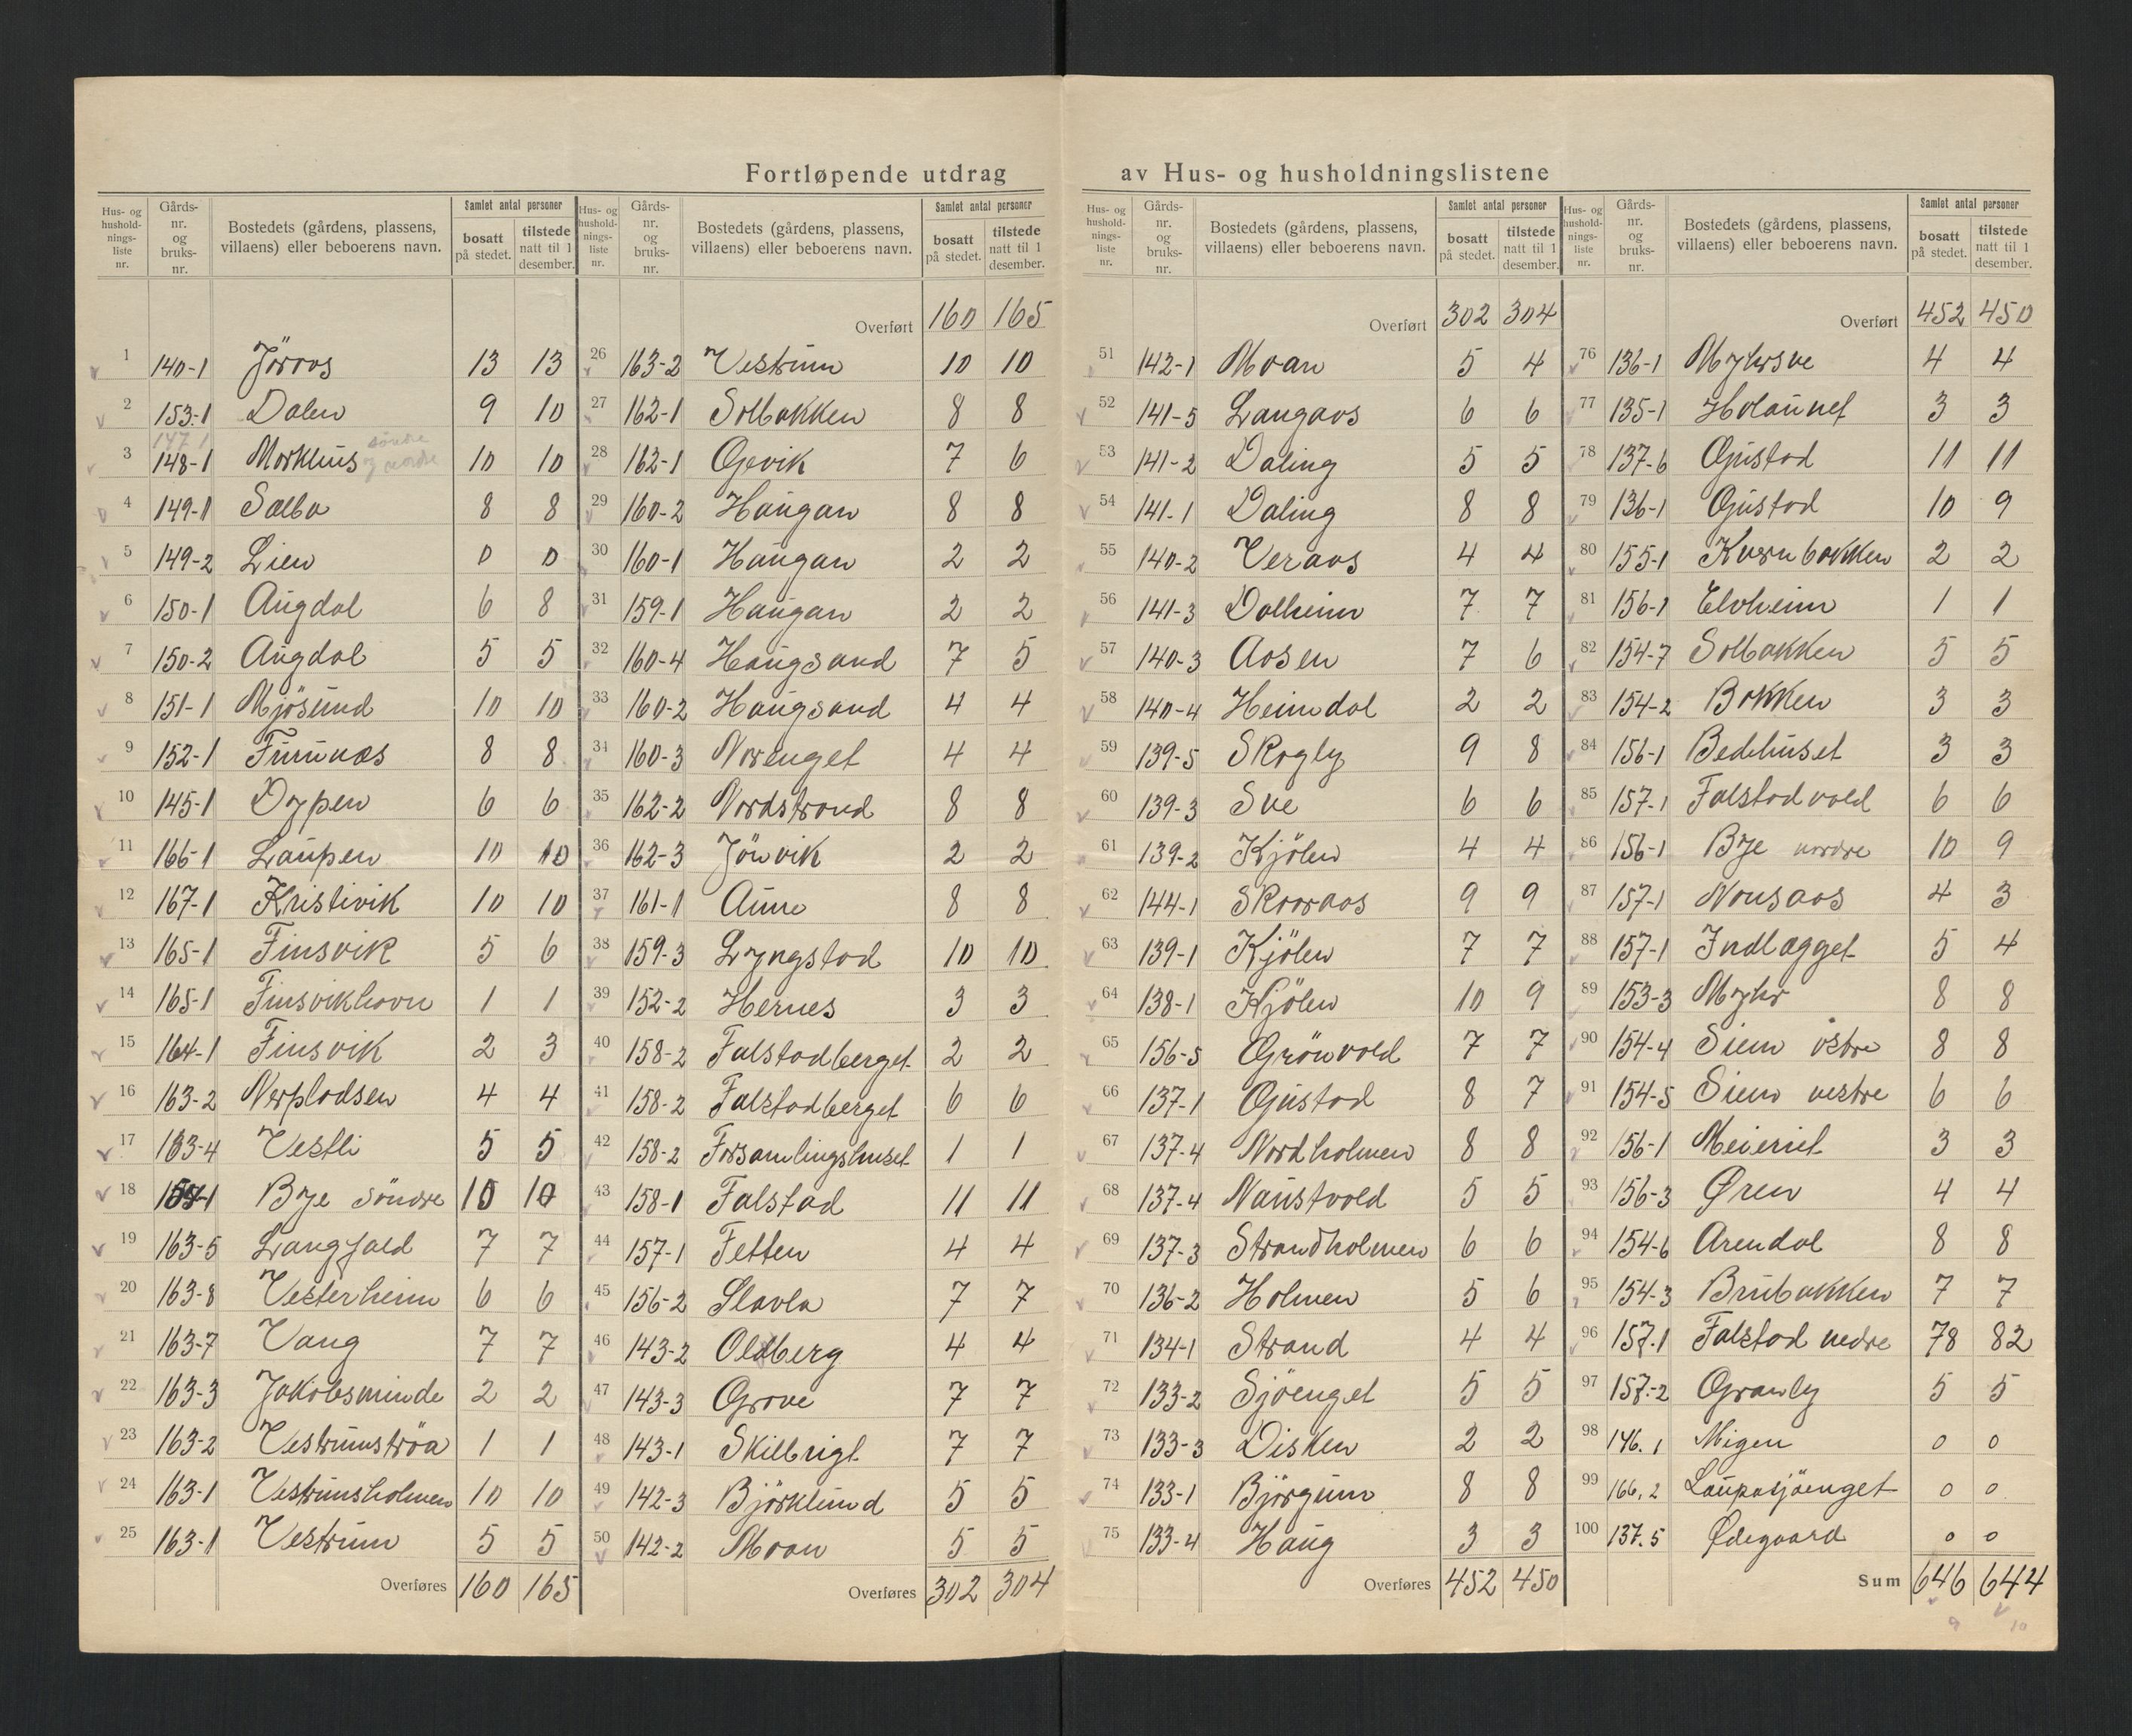 Fortløpende utdrag av Hus- og husholdningslistene
Hus- og hushold-nings-liste nr. Gårds-nr. og bruks-nr. Bostedets (gårdens, plassens, villaens) eller beboerens navn. Samlet antal personer bosatt på stedet. tilstede natt til 1 desember.
1 140-1 Jöraas 13 13
2 153-1 Dalen 9 10
3 147 1 148-1 Morkhus söndre og nordre 10 10
4 149-1 Salba 8 8
5 149-2 Lien 0 0
6 150-1 Augdal 6 8
7 150-2 Augdal 5 5
8 151-1 Mjösund 10 10
9 152-1 Furunæs 8 8
10 145-1 Dypen 6 6
11 166-1 Laupen 10 10
12 167-1 Kristivik 10 10
13 165-1 Finsvik 5 6
14 165-1 Finsvikhavn 1 1
15 164-1 Finsvik 2 3
16 163-2 Nerpladsen 4 4
17 163-4 Vestli 5 5
18 154-1 Bye Söndre 10 10
19 163-5 Langjald 7 7
20 163-8 Vesterheim 6 6
21 163-7 Vang 7 7
22 163-3 Jakobsminde 2 2
23 163-2 Vestrumströa 1 1
24 163-1 Vestrumsholmen 10 10
25 163-1 Vestrum 5 5
Overføres 160 165
Hus- og hushold-nings-liste nr. Gårds-nr. og bruks-nr. Bostedets (gårdens, plassens, villaens) eller beboerens navn. Samlet antal personer bosatt på stedet. tilstede natt til 1 desember.
Overført 160 165
26 163-2 Vestrum 10 10
27 162-1 Solbakken 8 8
28 162-1 Gjevik 7 6
29 160-2 Haugan 8 8
30 160-1 Haugan 2 2
31 159-1 Haugan 2 2
32 160-4 Haugsand 7 5
33 160-2 Haugsand 4 4
34 160-3 Norenget 4 4
35 162-2 Nordstrand 8 8
36 162-3 Jönvik 2 2
37 161-1 Aune 8 8
38 159-3 Lyngstad 10 10
39 152-2 Hernes 3 3
40 158-2 Falstadberget 2 2
41 158-2 Falstadberget 6 6
42 158-2 Forsamlingshuset 1 1
43 158-1 Falstad 11 11
44 157-1 Fetten 4 4
45 156-2 Slavla 7 7
46 143-2 Oldberg 4 4
47 143-3 Grove 7 7
48 143-1 Skillrigt 7 7
49 142-3 Björklund 5 5
50 142-2 Moan 5 5
Overføres 302 304
Hus- og hushold-nings-liste nr. Gårds-nr. og bruks-nr. Bostedets (gårdens, plassens, villaens) eller beboerens navn. Samlet antal personer bosatt på stedet. tilstede natt til 1 desember.
Overført 302 304
51 142-1 Moan 5 4
52 141-5 Langaas 6 6
53 141-2 Daling 5 5
54 141-1 Daling 8 8
55 140-2 Veraas 4 4
56 141-3 Dalheim 7 7
57 140-3 Aasen 7 6
58 140-4 Heimdal 2 2
59 139-5 Skogly 9 8
60 139-3 Sve 6 6
61 139-2 Kjölen 4 4
62 144-1 Skoraas 9 9
63 139-1 Kjölen 7 7
64 138-1 Kjölen 10 9
65 156-5 Grönvold 7 7
66 137-1 Gjustad 8 7
67 137-4 Nordholmen 8 8
68 137-4 Naustvold 5 5
69 137-3 Strandholmen 6 6
70 136-2 Holmen 5 6
71 134-1 Strand 4 4
72 133-2 Sjöenget 5 5
73 133-3 Disken 2 2
74 133-1 Björgum 8 8
75 133-4 Haug 3 3
Overføres 452 450
Hus- og hushold-nings-liste nr. Gårds-nr. og bruks-nr. Bostedets (gårdens, plassens, villaens) eller beboerens navn. Samlet antal personer bosatt på stedet. tilstede natt til 1 desember.
Overført 452 450
76 136-1 Myhrsve 4 4
77 135-1 Holaunet 3 3
78 137-6 Gjustad 11 11
79 136-1 Gjustad 10 9
80 155-1 Kvernbakken 2 2
81 156-1 Elvheim 1 1
82 154-7 Solbakken 5 5
83 154-2 Bakken 3 3
84 156-1 Bedehuset 3 3
85 157-1 Falstadvald 6 6
86 156-1 Bye nordre 10 9
87 157-1 Nonsaas 4 3
88 157-1 Indlægget 5 4
89 153-3 Myhr 8 8
90 154-4 Siem östre 8 8
91 154-5 Siem vestre 6 6
92 156-1 Meieriet 3 3
93 156-3 Øren 4 4
94 154-6 Arendal 8 8
95 154-3 Brubakken 7 7
96 157.1 Falstad nedre 78 82
97 157.-2 Granly 5 5
98 146.1 Migen 0 0
99 166.2 Laupasjöenget 0 0
100 137.5 Ødegaard 0 0
Sum 646 644
9 10